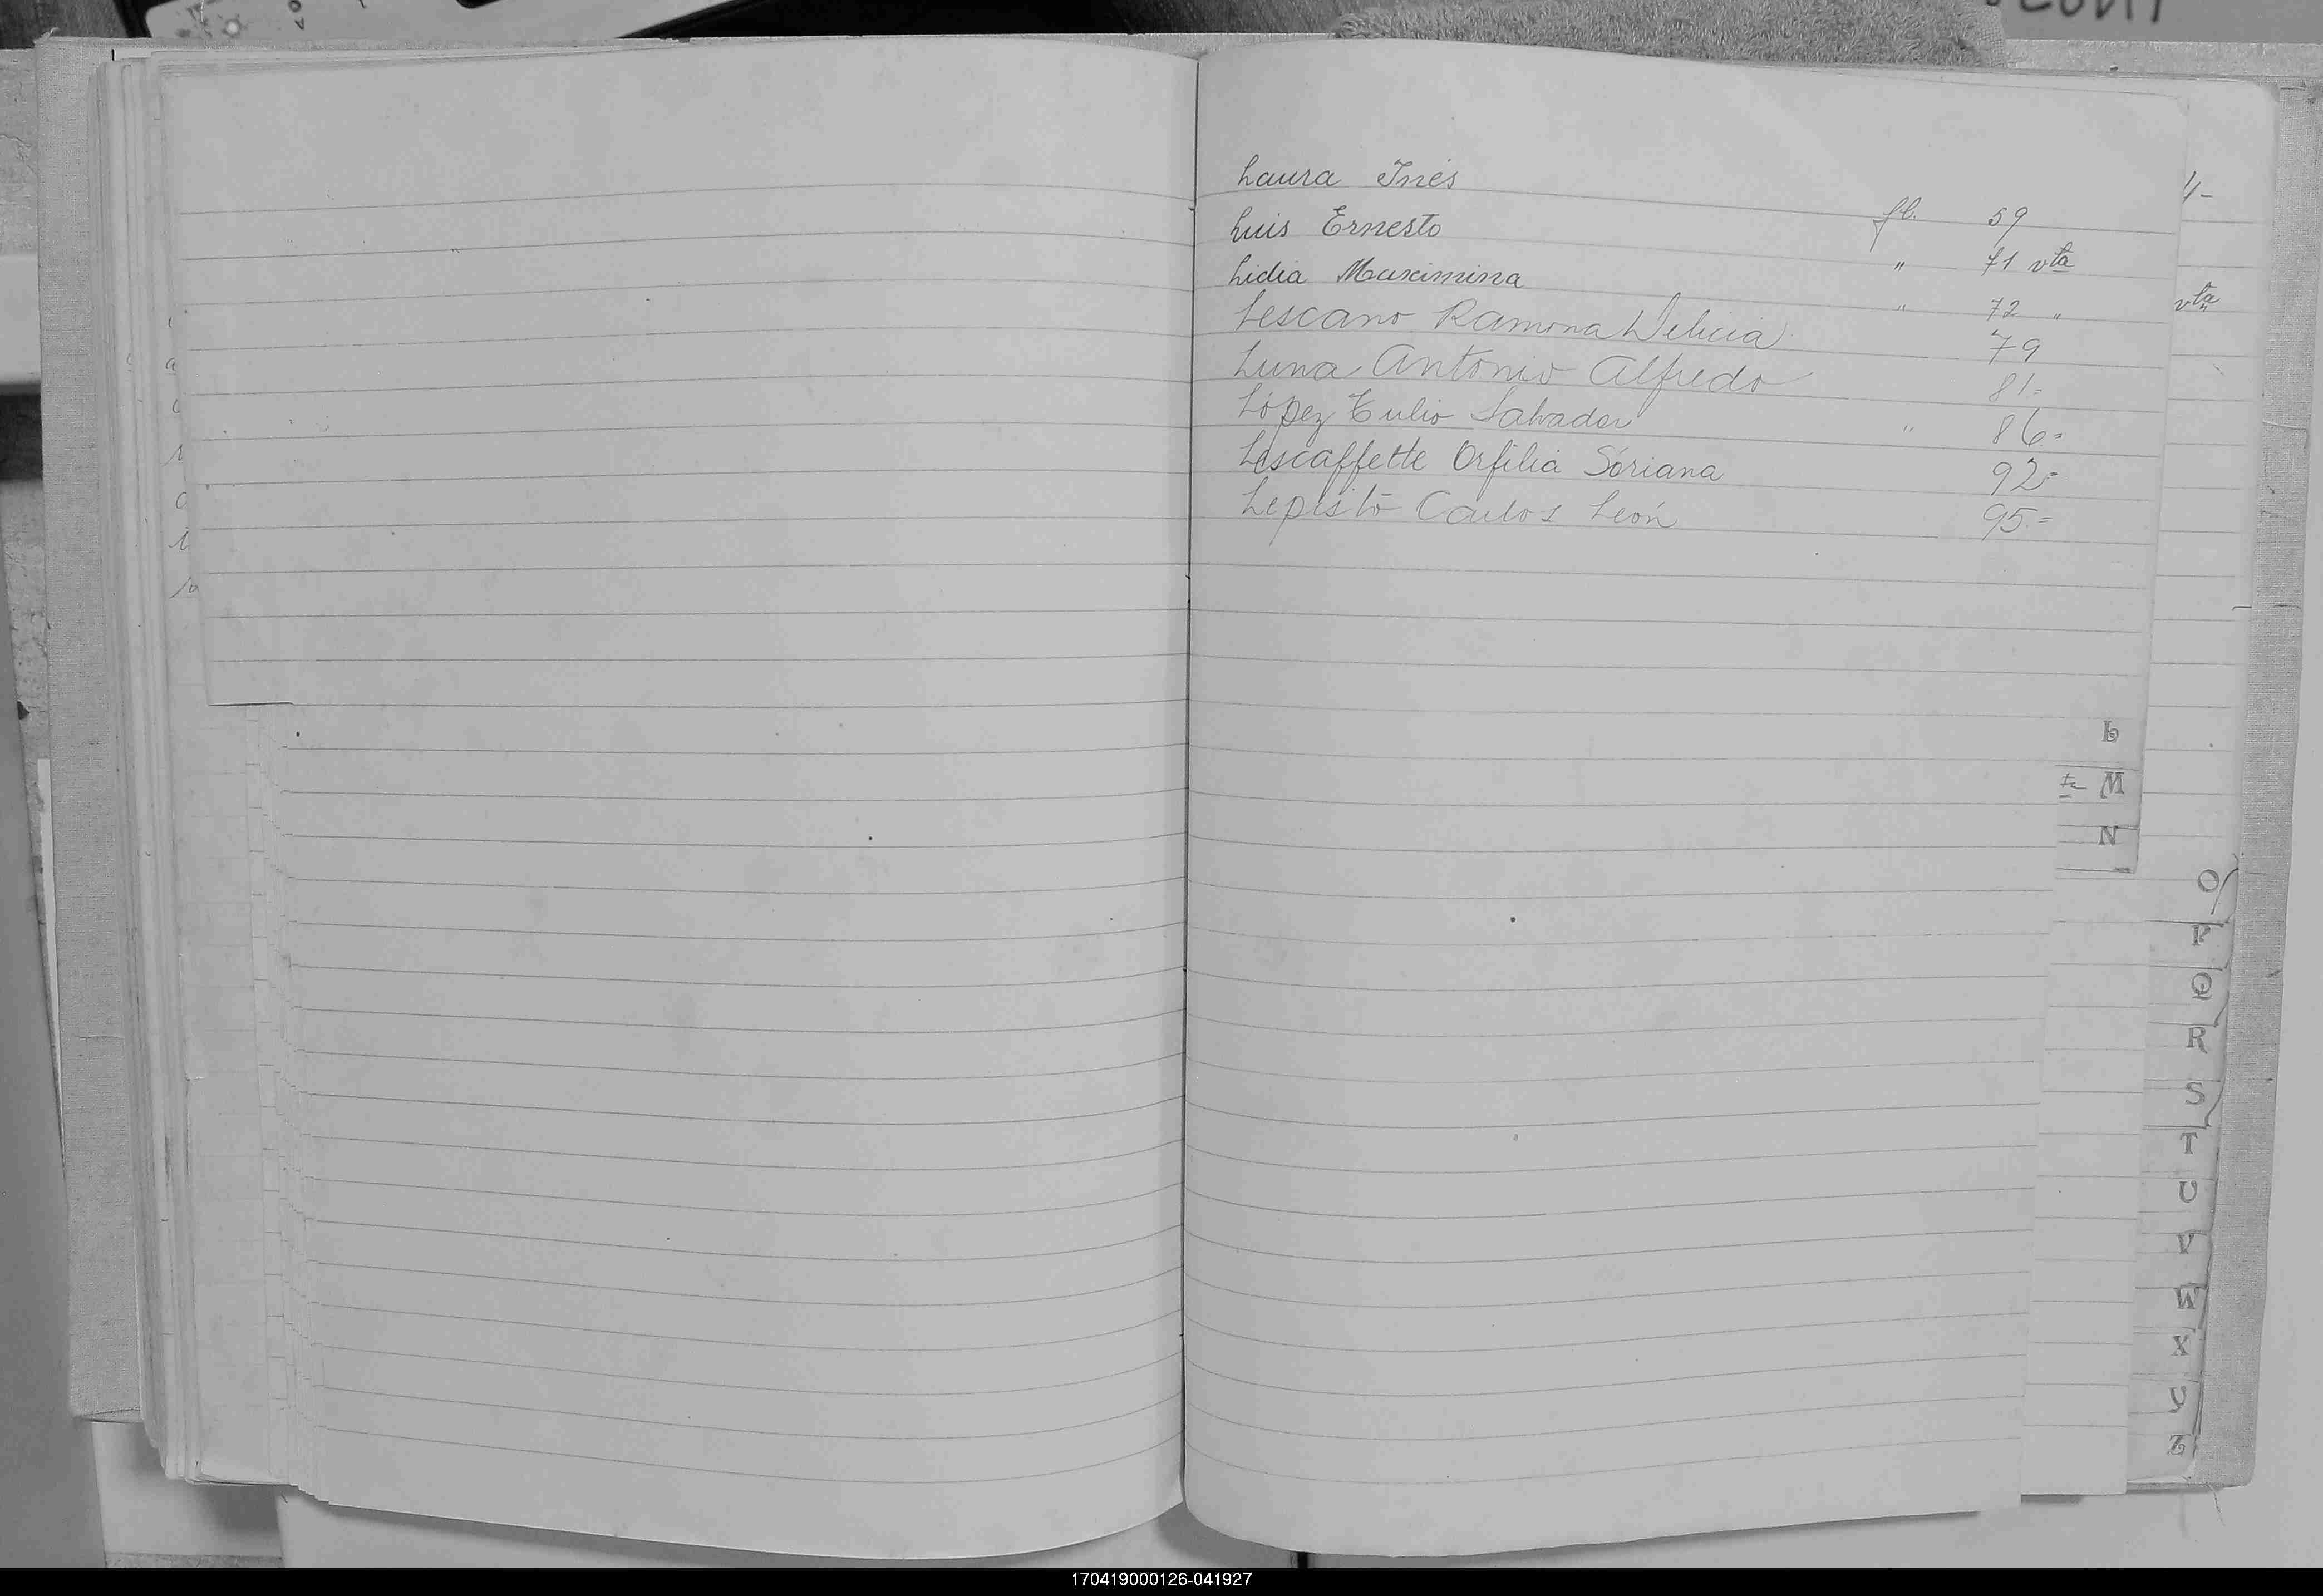 Laura Inés fl. 59
Luis Ernesto " 71 vta
Lidia Maximina " 72 "
Lescano Ramona Delicia 79
Luna Antonio Alfredo 81-
López Tulio Salvador " 86-
Lescaffette Orfilia Soriana 92-
Lepisto Carlos León 95.=
vta
L
M
N
O
P
Q
R
S
T
U
V
W
X
Y
Z
170419000126-041927